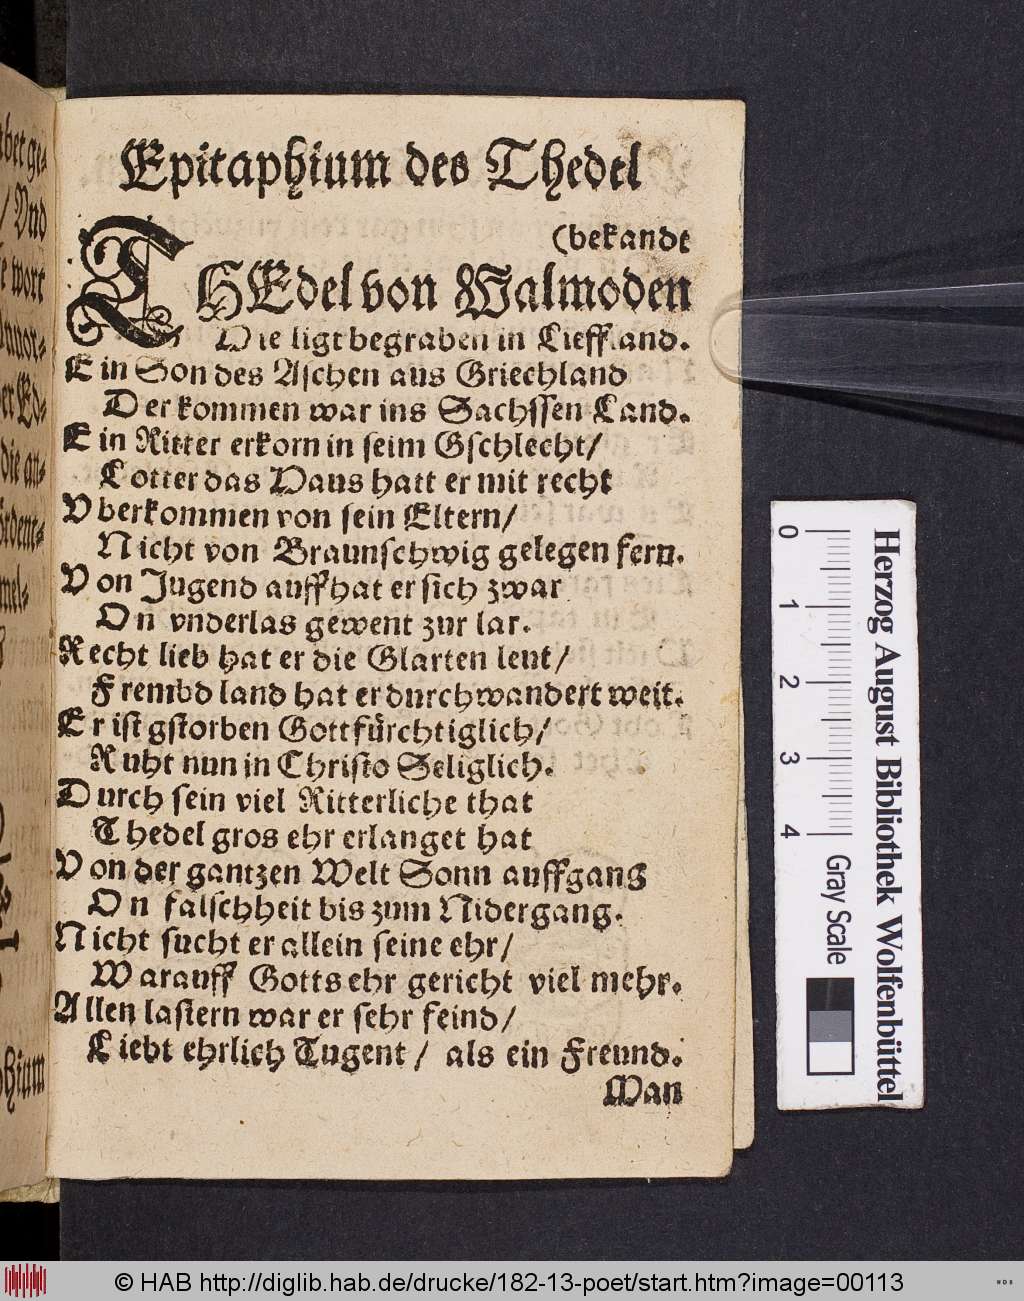 Epitaphium des Thedel
(bekandt
THEdel von Walmoden
Hie ligt begraben in Lieffland.
Ein Son des Aschen aus Griechland
Der kommen war ins Sachssen Land.
Ein Ritter erkorn in seim Gschlecht/
Lotter das Haus hatt er mit recht
Vberkommen von sein Eltern/
Nicht von Braunschwig gelegen fern.
Von Jugend auff hat er sich zwar
On vnderlas gewent zur lar.
Recht lieb hat er die Glarten leut/
Frembd land hat er durchwandert weit.
Er ist gstorben Gottfürchtiglich/
Ruht nun in Christo Seliglich.
Durch sein viel Ritterliche that
Thedel gros ehr erlanget hat
Von der gantzen Welt Sonn auffgang
On falschheit bis zum Nidergang.
Nicht sucht er allein seine ehr/
Warauff Gotts ehr gericht viel mehr.
Allen lastern war er sehr feind/
Liebt ehrlich Tugent/ als ein Freund.
Man
bet ge-
/ Vnd
e wort
er Ed-
die an-
ordent-
mel-
phium
0 1 2 3 4
Gray Scale
Herzog August Bibliothek Wolfenbüttel
© HAB http://diglib.hab.de/drucke/182-13-poet/start.htm?image=00113
WDB